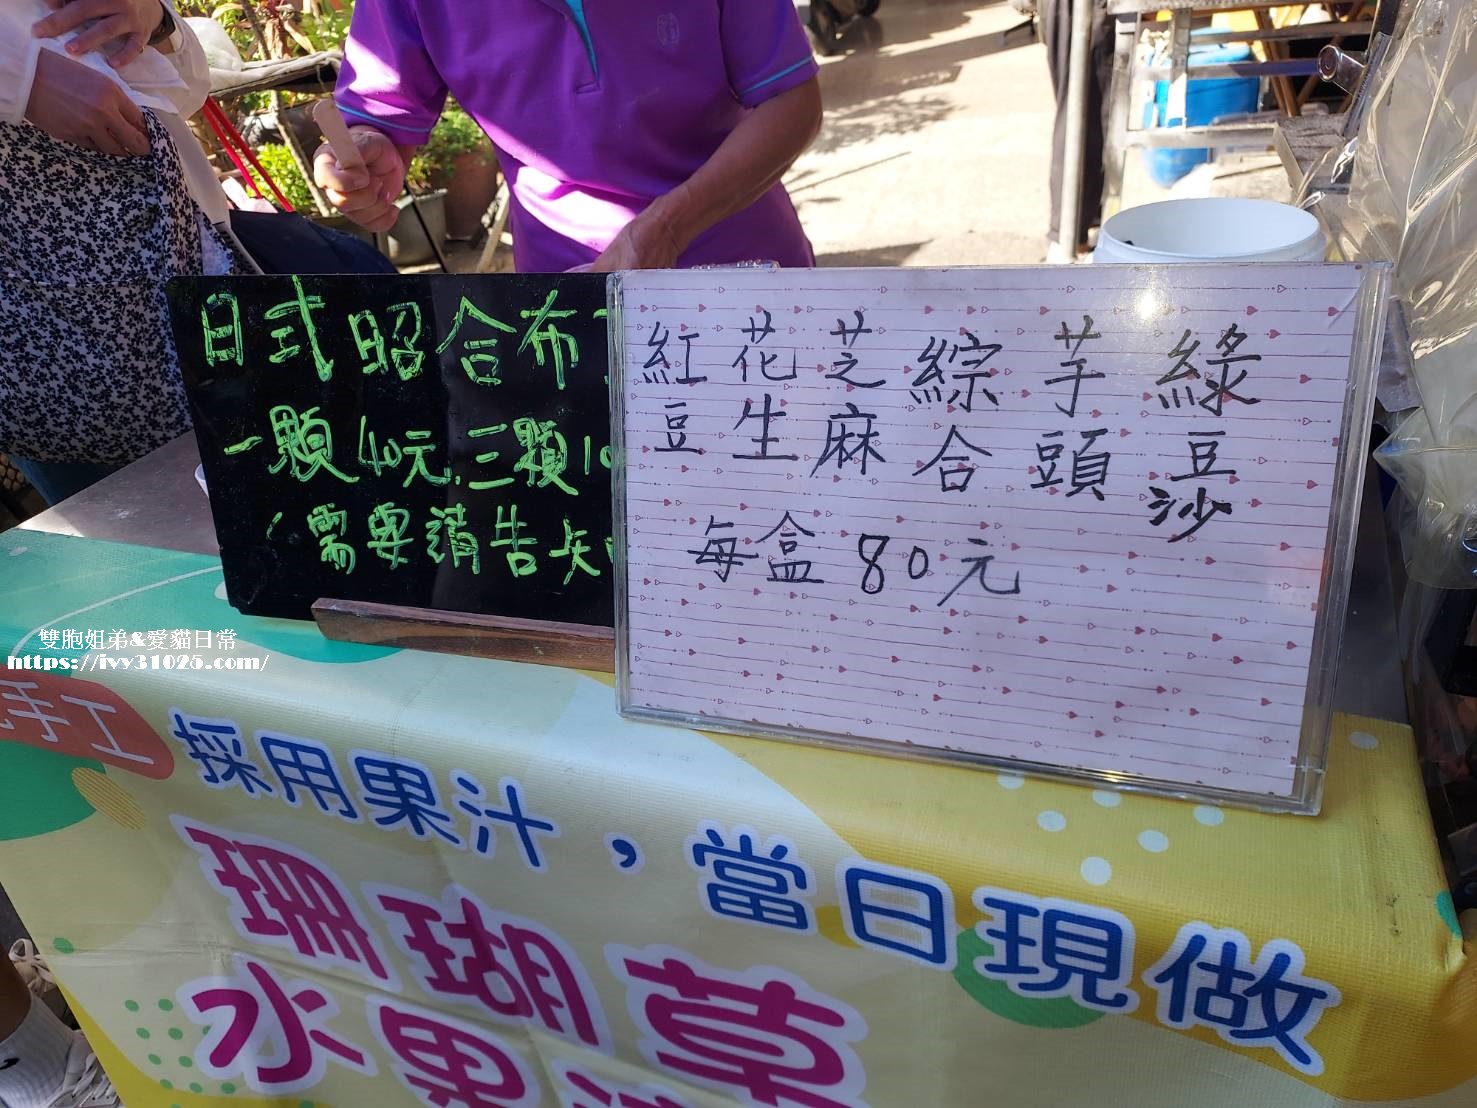 日式昭合布
一顆40元.三顆10
(需要請告知
紅豆
花生
芝麻
綜合
芋頭
綠豆沙
每盒80元
雙胞姐弟&愛貓日常
https://ivy31025.com/
手工
採用果汁，當日現做
珊瑚草
水果